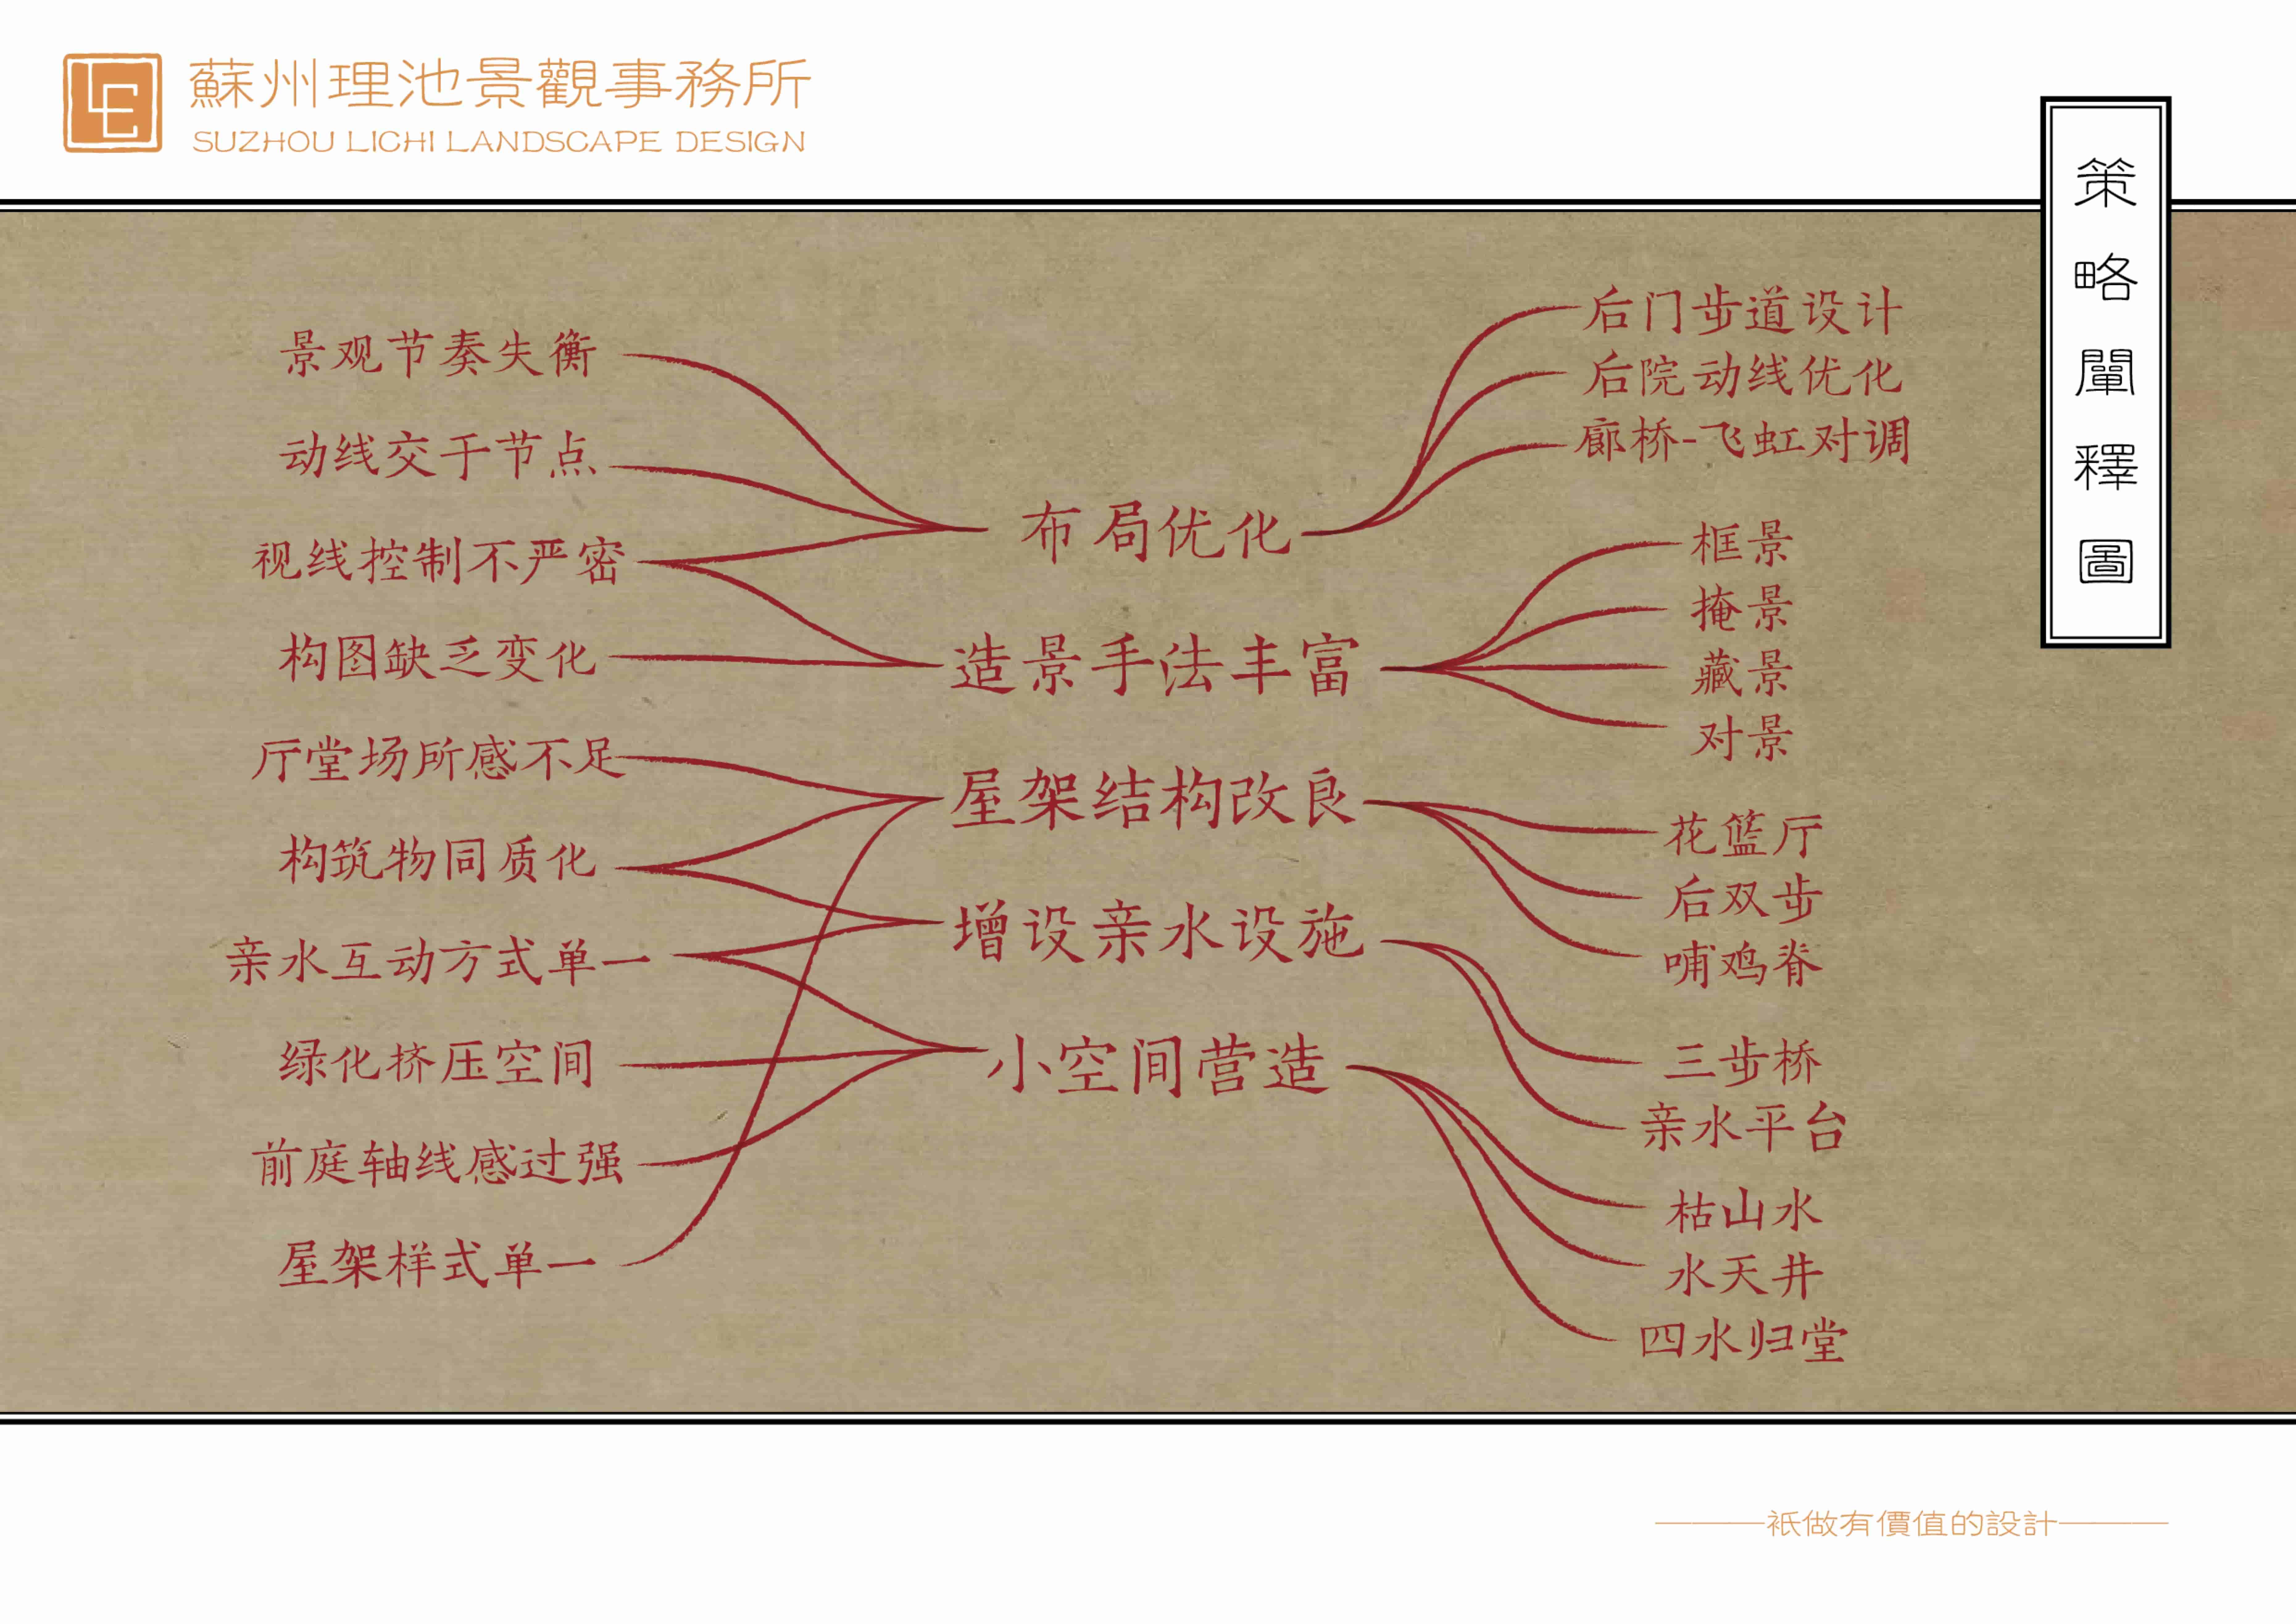 蘇州理池景觀事務所
SUZHOU LICHI LANDSCAPE DESIGN
策略闡釋圖
景观节奏失衡
动线交于节点
视线控制不严密
构图缺乏变化
厅堂场所感不足
构筑物同质化
亲水互动方式单一
绿化挤压空间
前庭轴线感过强
屋架样式单一
布局优化
造景手法丰富
屋架结构改良
增设亲水设施
小空间营造
后门步道设计
后院动线优化
廊桥-飞虹对调
框景
掩景
藏景
对景
花篮厅
后双步
哺鸡脊
三步桥
亲水平台
枯山水
水天井
四水归堂
————祇做有價值的設計————